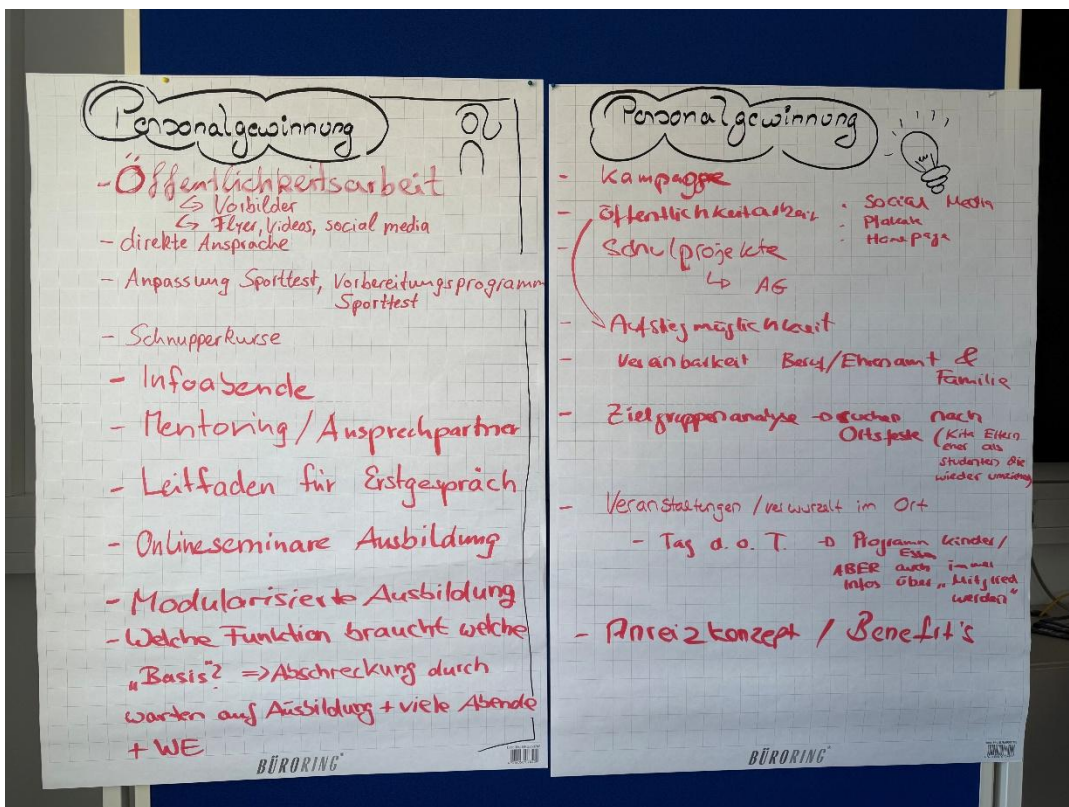 Personalgewinnung
- Öffentlichkeitsarbeit
↳ Vorbilder
↳ Flyer, Videos, social media
- direkte Ansprache
- Anpassung Sporttest, Vorbereitungsprogramm
Sporttest
- Schnupperkurse
- Infoabende
- Mentoring / Ansprechpartner
- Leitfaden für Erstgespräch
- Onlineseminare Ausbildung
- Modularisierte Ausbildung
- Welche Funktion braucht welche
„Basis"? => Abschreckung durch
warten auf Ausbildung + viele Abende
+ WE
BÜRORING
Personalgewinnung
- Kampagne
- Öffentlichkeitarbeit
· Social Media
· Plakate
· Homepage
- Schulprojekte
↳ AG
- Aufstiegmöglichkeit
- Vereinbarkeit Beruf/Ehrenamt &
Familie
- Zielgruppenanalyse → suchen nach
Ortsfeste (Kita Eltern
eher als
Studenten die
wieder umziehen
- Veranstaltungen / verwurzelt im Ort
- Tag d. o. T. → Programm Kinder/
Essen
ABER auch immer
Infos über „Mitglied
werden"
- Anreizkonzept / Benefit's
BÜRORING